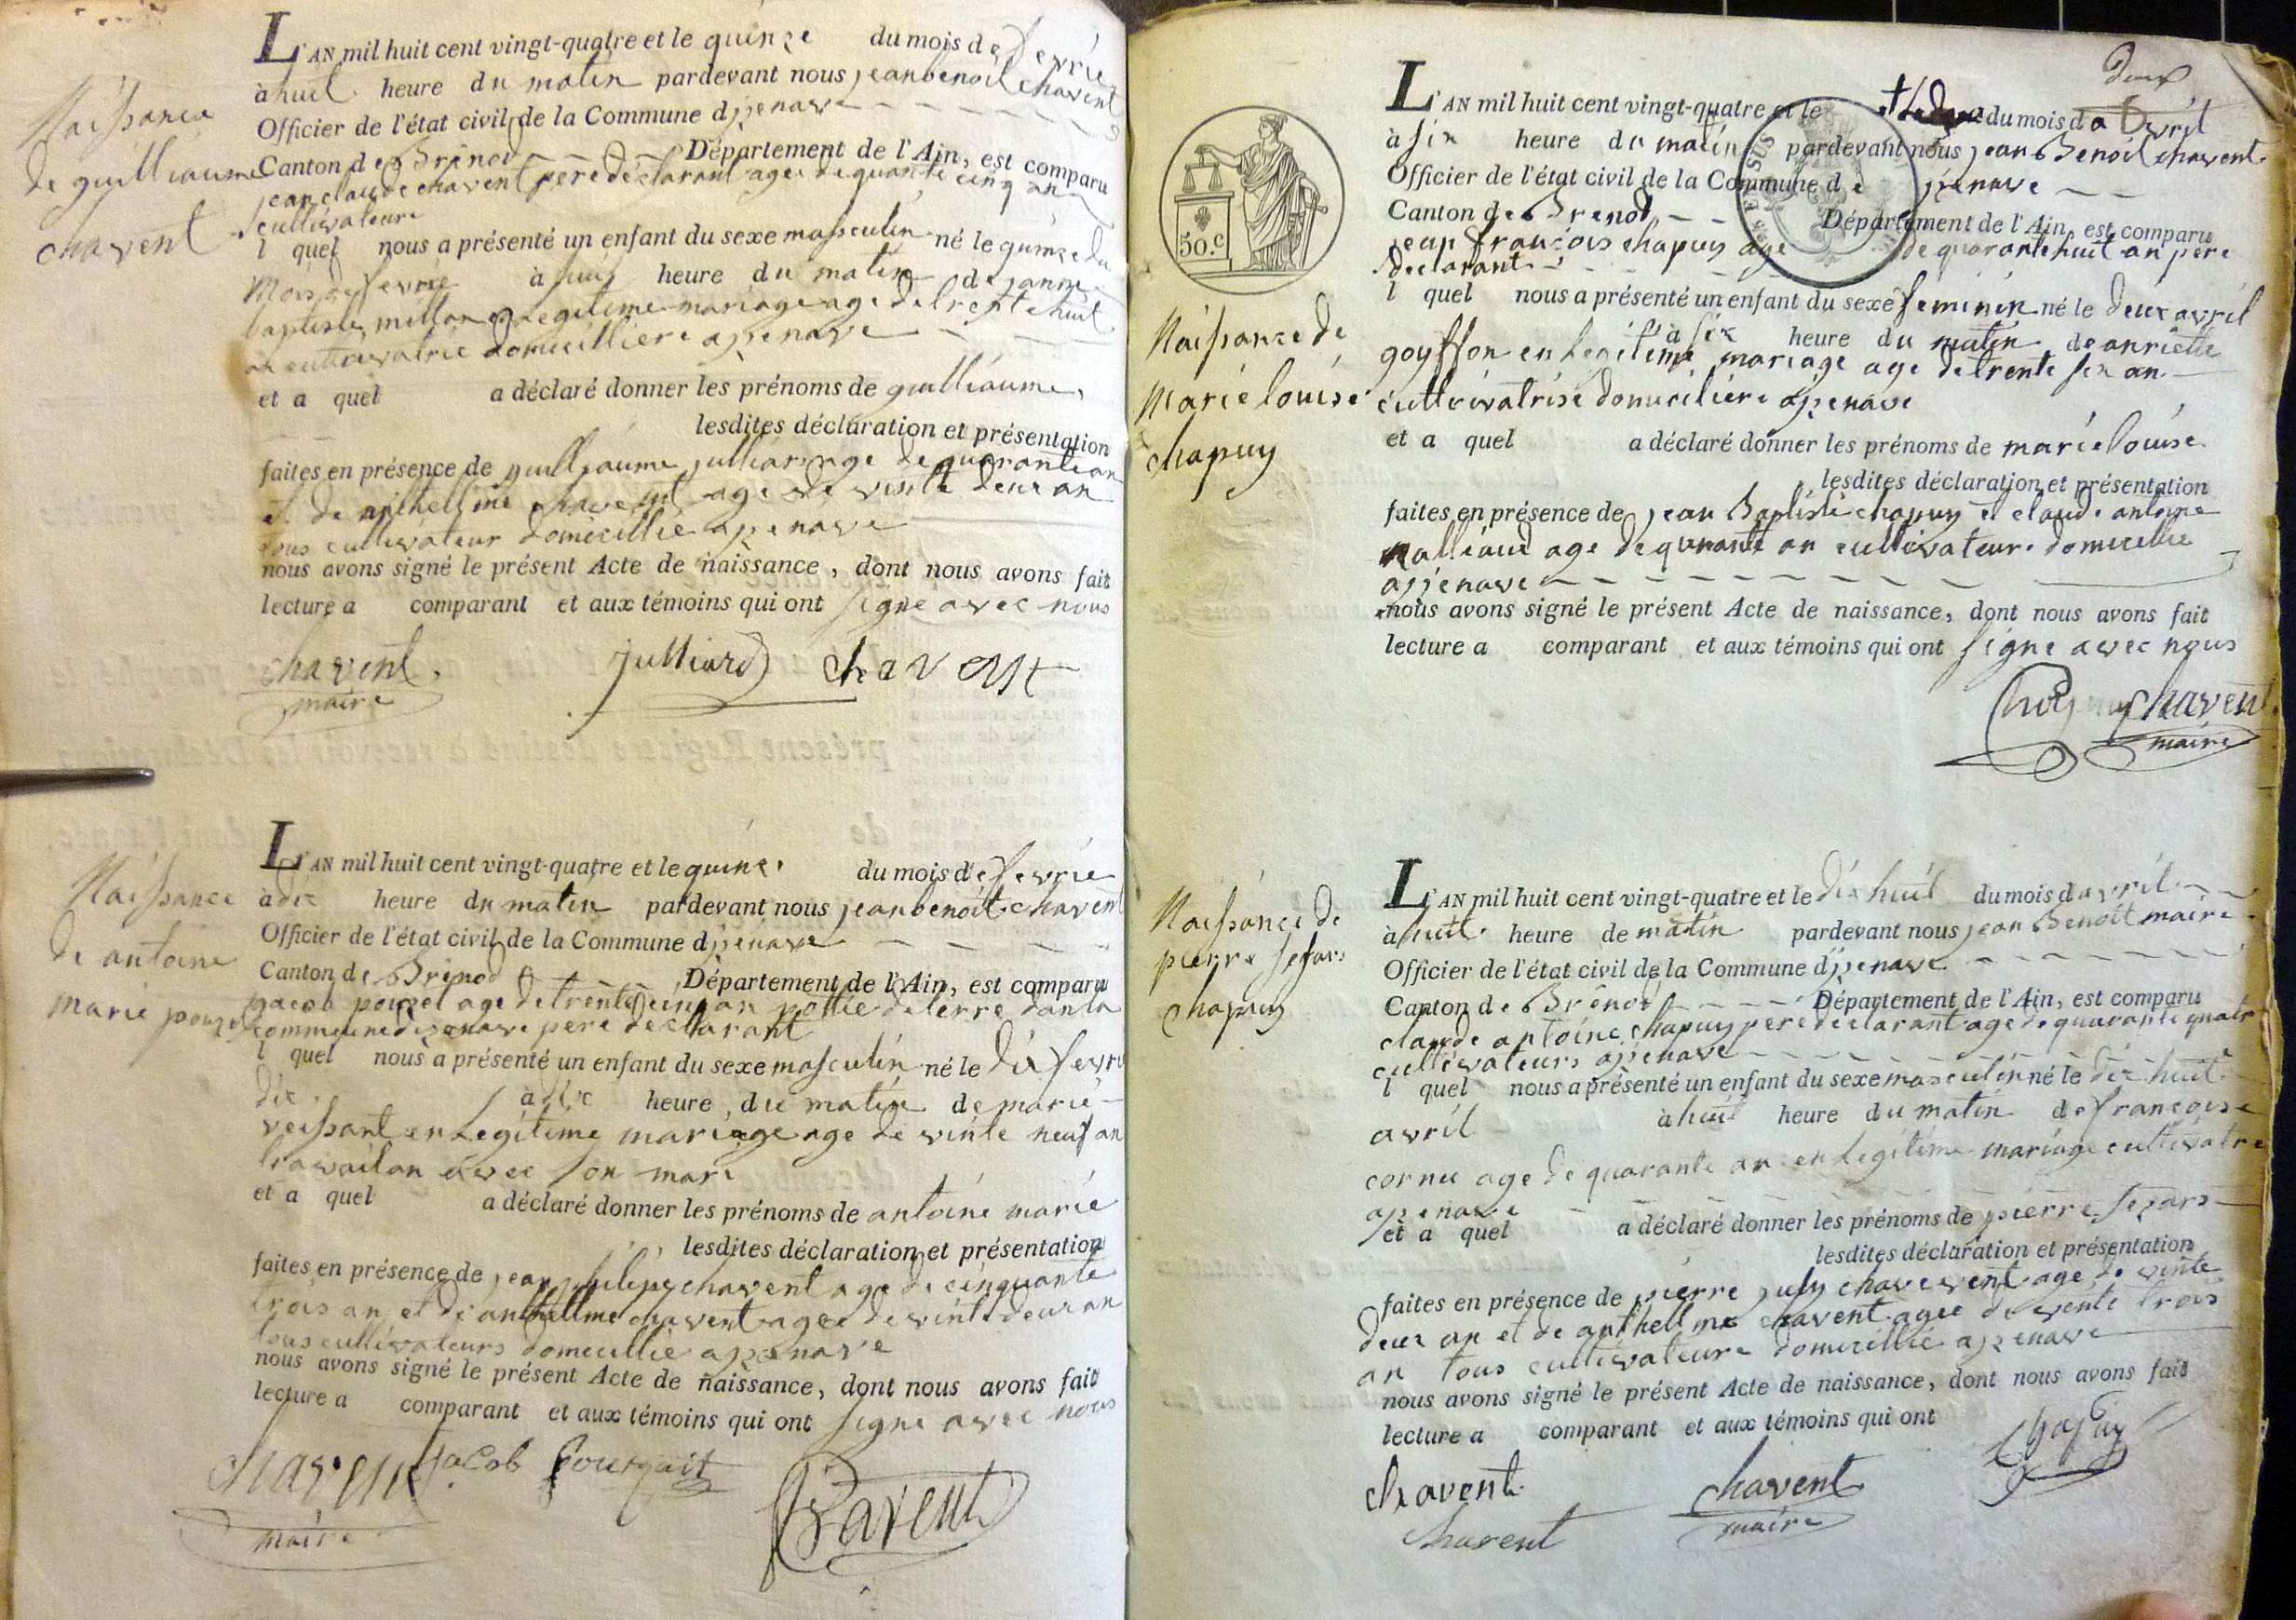 Naissance
de guilliaume
chavent
L'AN mil huit cent vingt-quatre et le quinze du mois de fevrie
à huit heure du matin pardevant nous jean benoit chavent
Officier de l'état civil de la Commune d izenave
Canton de Brénod Département de l'Ain, est comparu
jean claude chavent pere déclarant agée de quarante cinq an
cultivateur
l quel nous a présenté un enfant du sexe masculin né le quinze du
Mois de fevrie à huit heure du matin de janne
baptiste millon en legitime mariage age de trente huit
an cultivatrice domicilliere a izenave
et a quel a déclaré donner les prénoms de guilliaume,
lesdites déclaration et présentation
faites en présence de guilliaume julliard age de quarante an
et de anthellme chavent age de vinte deux an
tous cultivateur domicillié a izenave
nous avons signé le présent Acte de naissance, dont nous avons fait
lecture a comparant et aux témoins qui ont signe avec nous
chavent julliard chavent
maire
Naissance
de antoine
marie pouzet
L'AN mil huit cent vingt-quatre et le quinze du mois de fevrie
à dix heure du matin pardevant nous jean benoit chavent
Officier de l'état civil de la Commune d izenave
Canton de Brénod Département de l'Ain, est comparu
jacob pouzet age de trente cinq an pottié de terre dan la
commune dizenave pere declarant
l quel nous a présenté un enfant du sexe masculin né le dix fevrie
dix à dix heure du matin de marie
veissant en Legitime mariage age de vinte neuf an
travailan avec son mari
et a quel a déclaré donner les prénoms de antoine marie
lesdites déclaration et présentation
faites en présence de jean chavent age de cinquante
trois an et de anthellme chavent agee de vinte deux an
tous cultivateurs domicillié a izenave
nous avons signé le présent Acte de naissance, dont nous avons fait
lecture a comparant et aux témoins qui ont signe avec nous
chavent jacob
maire chavent
50.c
Naissance de
Marie louise
chapuy
deux
L'AN mil huit cent vingt-quatre et le du mois d avril
à six heure du matin pardevant nous jean Benoit chavent
Officier de l'état civil de la Commune de izenave
Canton de Brenod Département de l'Ain, est comparu
jean françois chapuy age de quarante huit an pere
declarant
l quel nous a présenté un enfant du sexe feminin né le deux avril
à six heure du matin de anriette
goyffon en Legitime mariage age de trente six an
cultivatrise domiciliere a izenave
et a quel a déclaré donner les prénoms de marie louise
lesdites déclaration et présentation
faites en présence de jean Baptiste chapuy et claude antoine
age de quarante an cultivateur domicillie
a izenave
nous avons signé le présent Acte de naissance, dont nous avons fait
lecture a comparant et aux témoins qui ont signe avec nous
Chapuy chavent
maire
Naissance de
pierre sesars
chapuy
L'AN mil huit cent vingt-quatre et le dix huit du mois d avril
à huit heure de matin pardevant nous jean Benoit maire
Officier de l'état civil de la Commune d izenave
Canton de Brénod Département de l'Ain, est comparu
claude antoine chapuy pere declarant age de quarante quatre
cultivateurs a izenave
l quel nous a présenté un enfant du sexe masculin né le dix huit
avril à huit heure du matin de françoise
cornu age de quarante an en Legitime mariage cultivatre
a izenave
et a quel a déclaré donner les prénoms de pierre sezars
lesdites déclaration et présentation
faites en présence de pierre chavent age de vinte
deux an et de anthellme chavent agee de vinte trois
an tous cultivateurs domicillie a izenave
nous avons signé le présent Acte de naissance, dont nous avons fait
lecture a comparant et aux témoins qui ont
chavent chavent chapuy
chavent maire